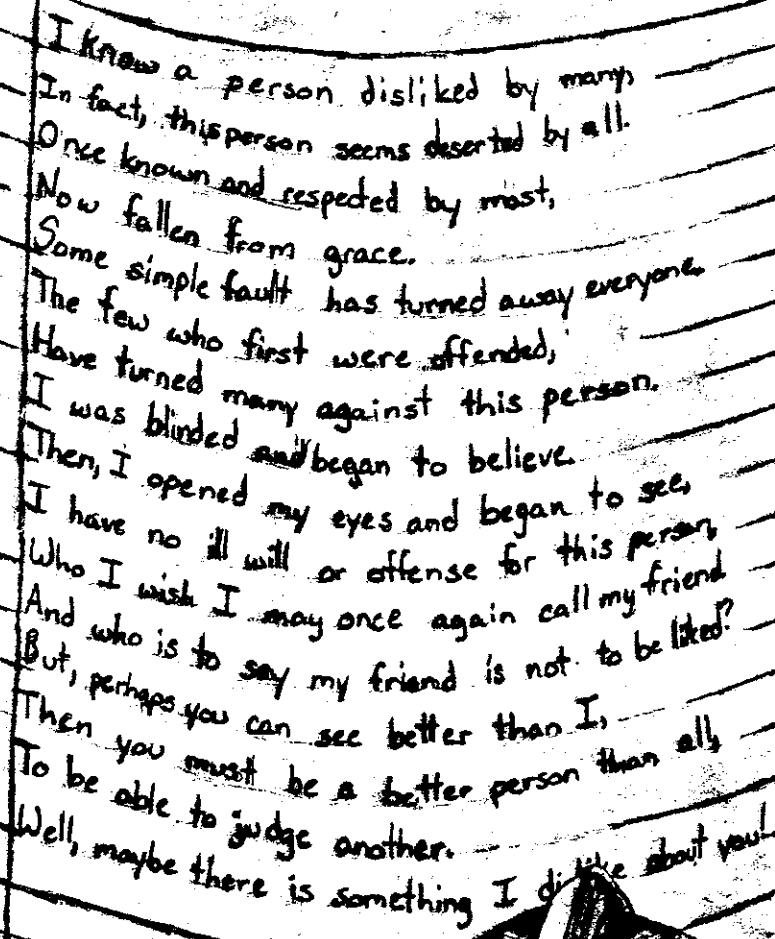 I know a person disliked by many,
In fact, this person seems deserted by all.
Once known and respected by most,
Now fallen from grace.
Some simple fault has turned away everyone.
The few who first were offended,
Have turned many against this person.
I was blinded and began to believe.
Then, I opened my eyes and began to see,
I have no ill will or offense for this person,
Who I wish I may once again call my friend
And who is to say my friend is not to be liked?
But, perhaps you can see better than I,
Then you must be a better person than all,
To be able to judge another.
Well, maybe there is something I dislike about you!